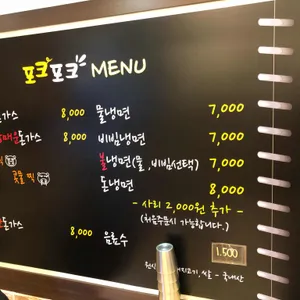 포크포크 MENU
돈가스 8,000
매운돈가스 8,000
돈가스 8,000
물냉면 7,000
비빔냉면 7,000
불냉면(물,비빔선택) 7,000
돈냉면 8,000
- 사리 2,000원 추가 -
(처음주문시 가능합니다.)
음료수 1,500
국내산